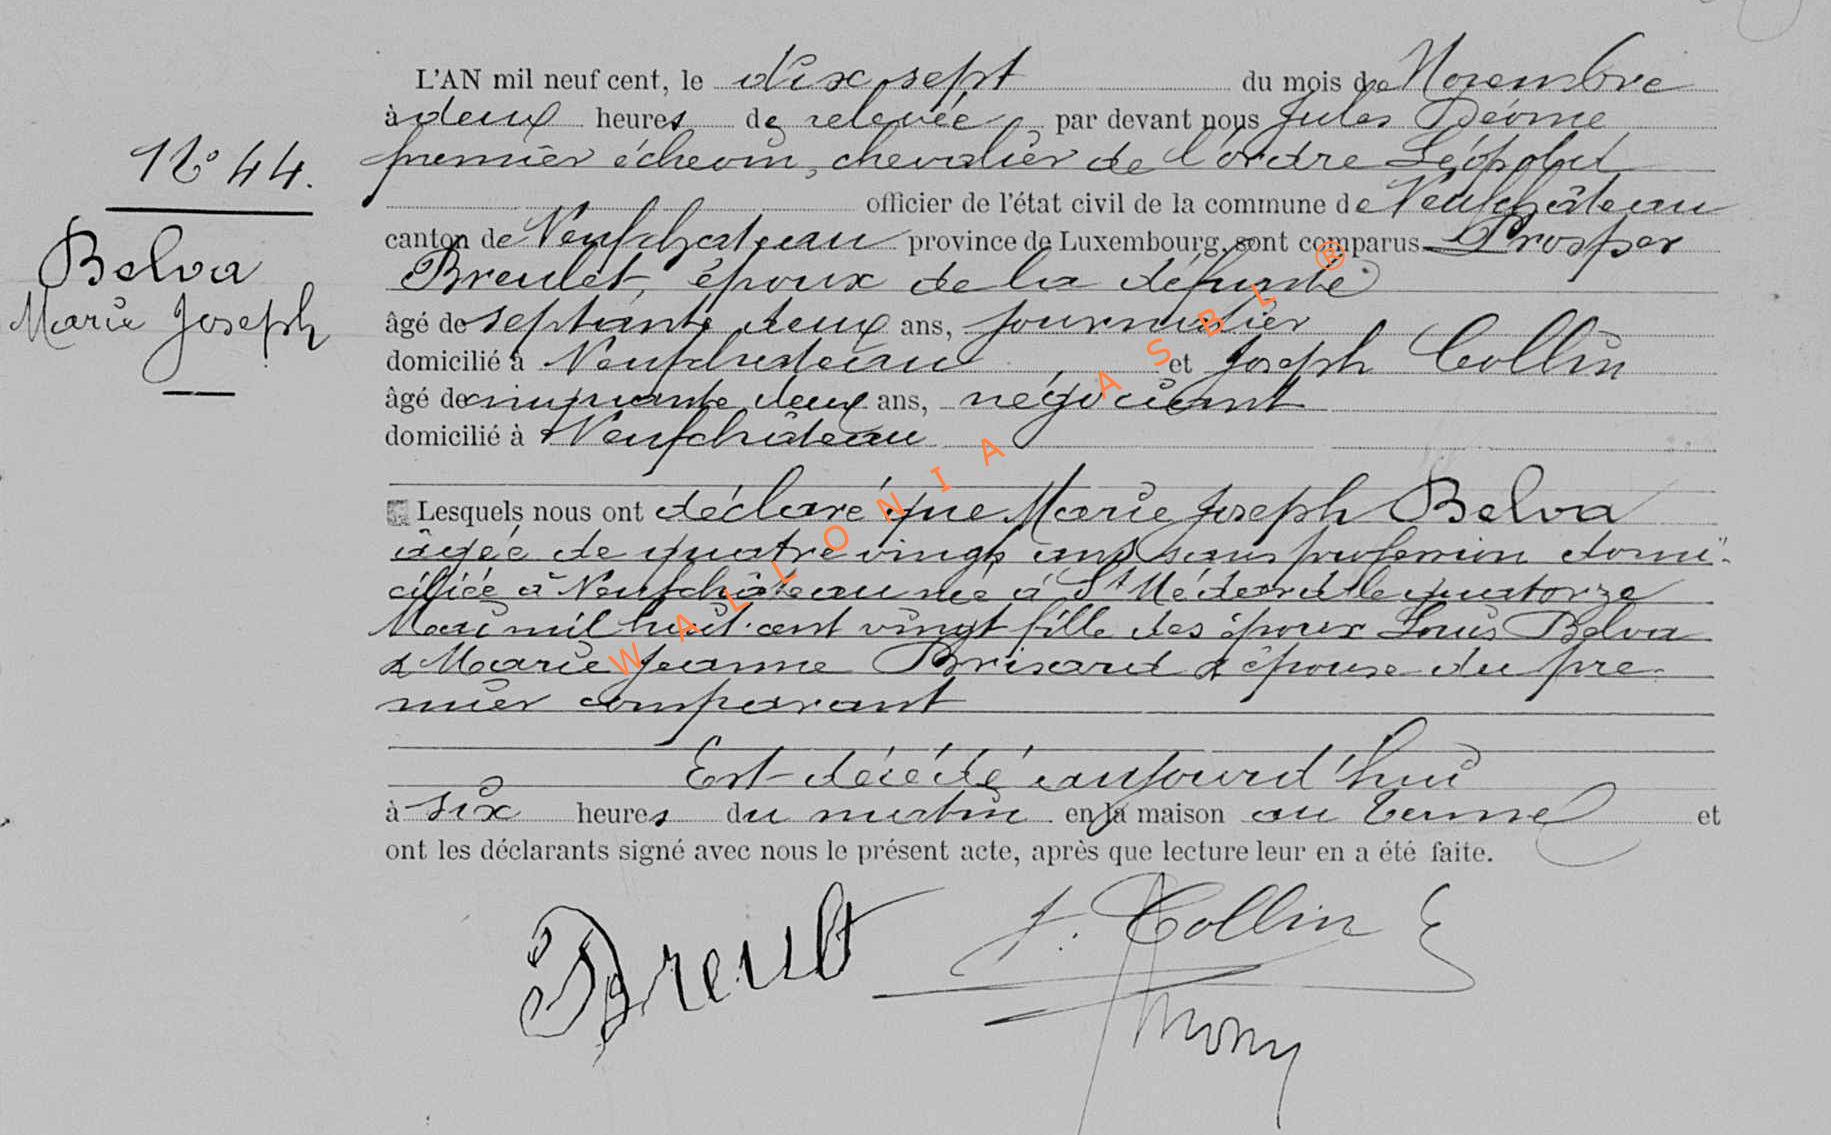 N° 44.
Belva
Marie Joseph
L'AN mil neuf cent, le dix sept du mois de Novembre
à deux heures de relevée par devant nous Jules
premier échevin, chevalier de l'ordre Léopold
officier de l'état civil de la commune de Neufchâteau
canton de Neufchateau province de Luxembourg, sont comparus Prosper
Breulet, époux de la défunte
âgé de septante deux ans, journalier
domicilié à Neufchateau et Joseph Collin
âgé de cinquante deux ans, négociant
domicilié à Neufchâteau
Lesquels nous ont déclaré que Marie Joseph Belva
âgée de quatre vingt ans sans profession domi
ciliée à Neufchâteau née à St Médard le quatorze
Mai mil huit cent vingt fille des époux Louis Belva
& Marie Jeanne Brisard & épouse du pre
mier comparant
Est décédé aujourd'hui
à six heures du matin en la maison au Terme et
ont les déclarants signé avec nous le présent acte, après que lecture leur en a été faite.
J. Collin
WALLONIA ASBL ®